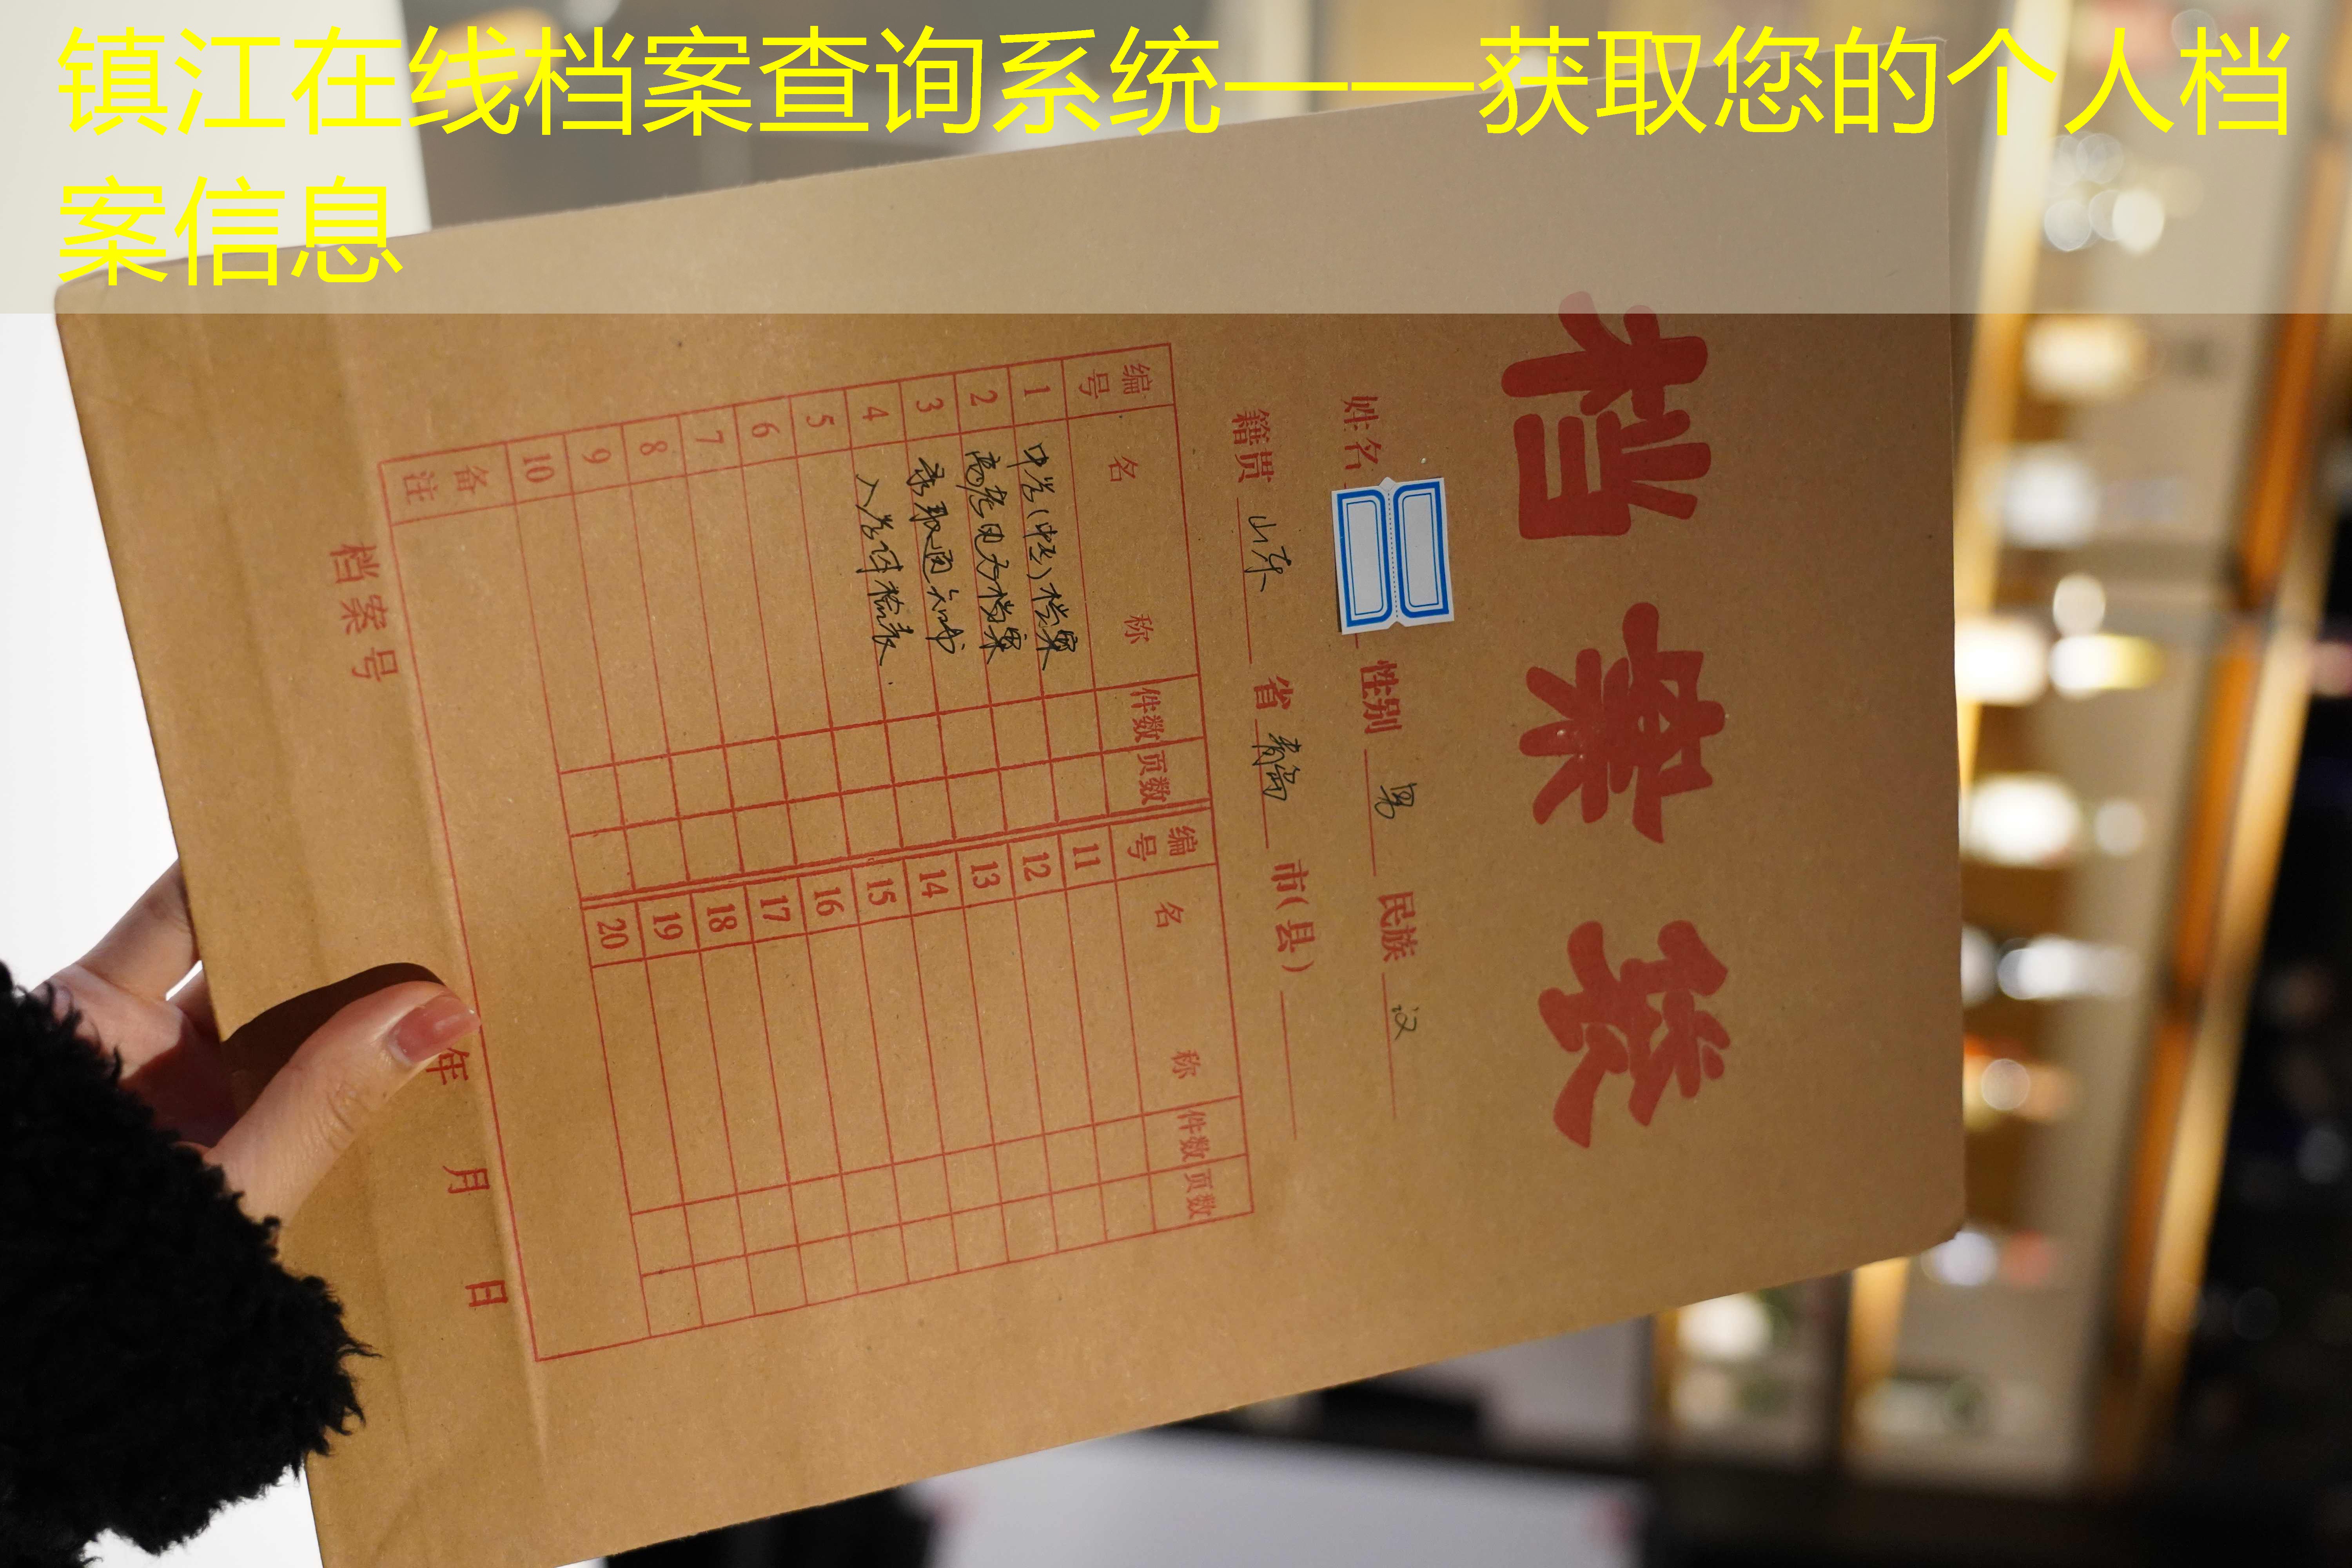 镇江在线档案查询系统——获取您的个人档
案信息
档案袋
姓名 性别 男 民族 汉
籍贯 山东 省 青岛 市(县)
编号 名称 件数 页数 编号 名称 件数 页数
1 中学(中专)档案 11
2 高考电子档案 12
3 录取通知书 13
4 入学体检表 14
5 15
6 16
7 17
8 18
9 19
10 20
备注
档案号 年 月 日